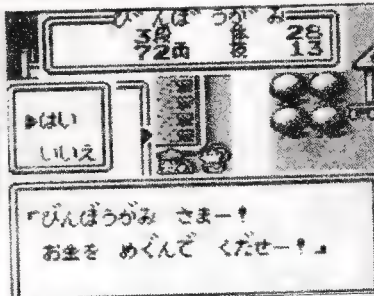 びんぼうがみ
3月 28
72両 13
▶はい
いいえ
「びんぼうがみ さまー!
お金を めぐんで くだせー!」